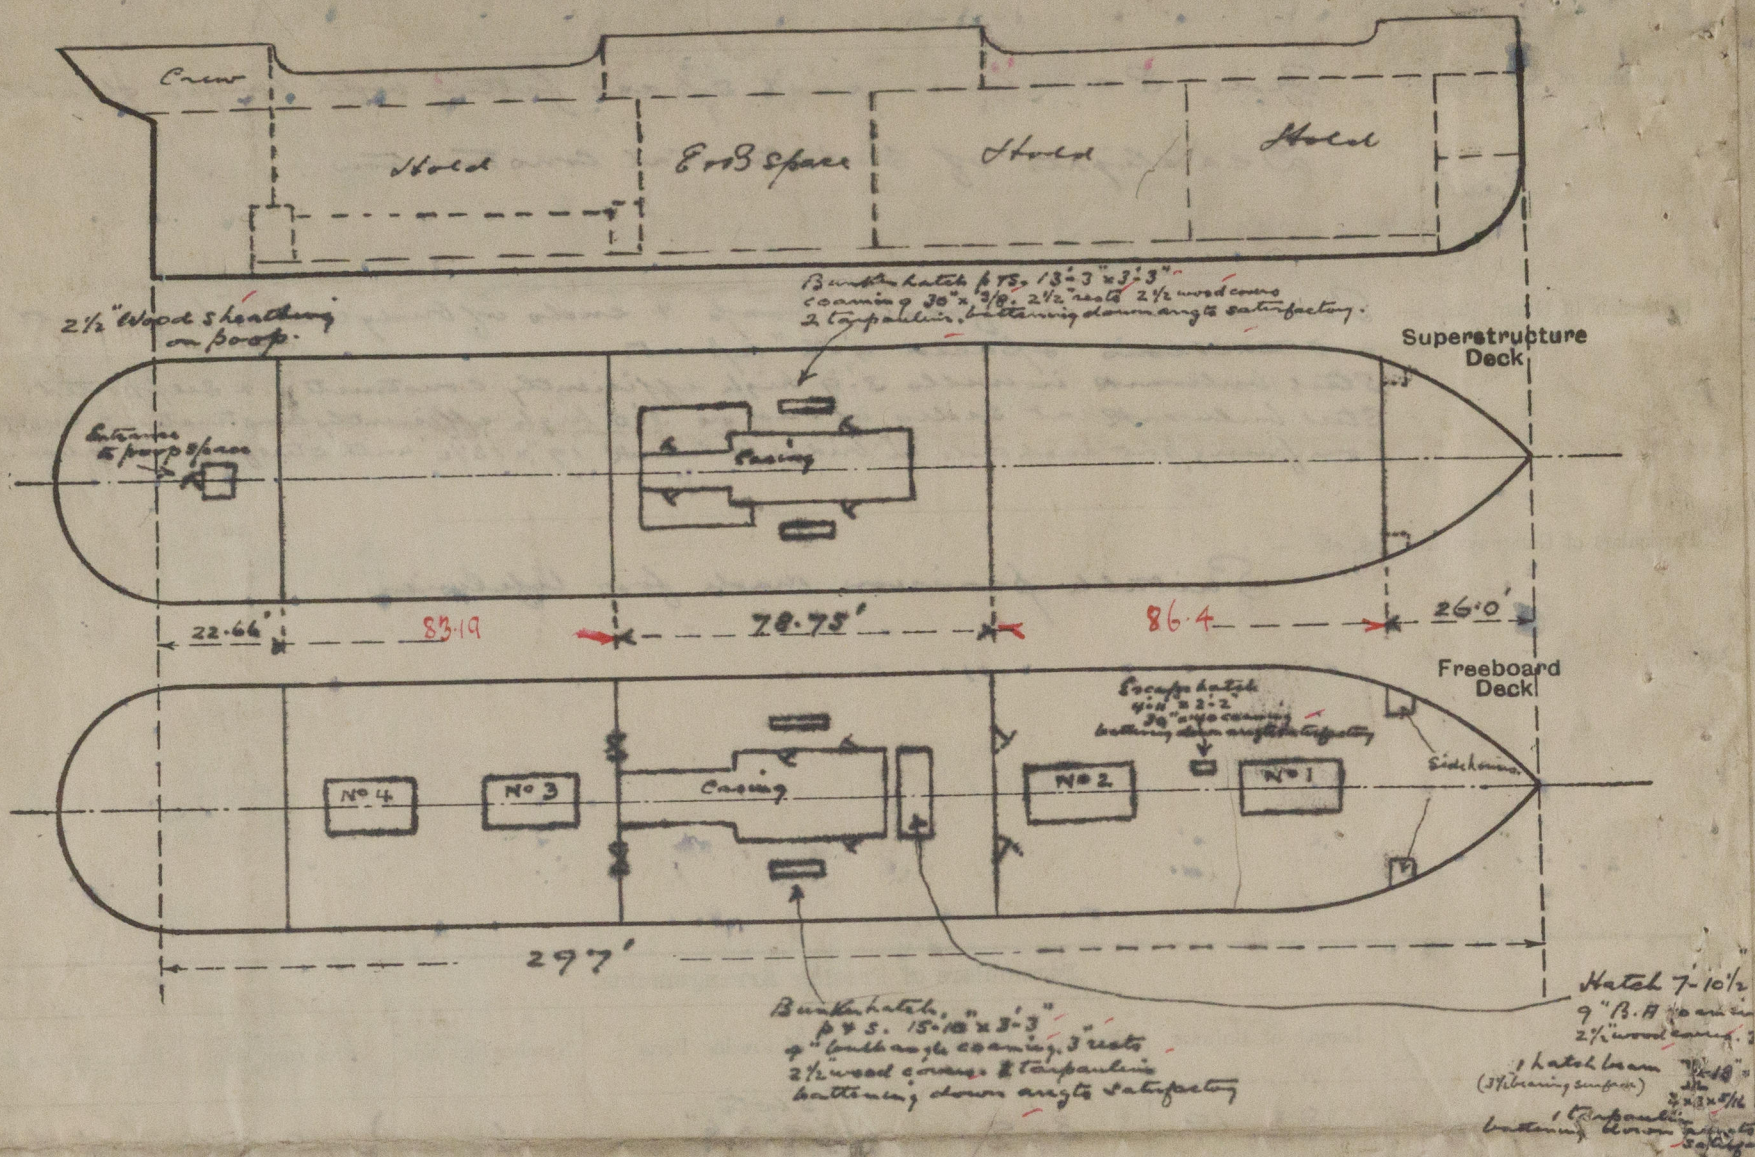 Crew
Hold
E & B space
Hold
Hold
Bunker hatch p & s. 13'-3" x 3'-3"
coaming 30" x 3/8. 2 1/2" rests 2 1/2 wood covers
2 tarpaulins. battening down arrgts satisfactory.
2 1/2" Wood sheathing
on poop.
Superstructure
Deck
Entrance
to poop space
Casing
22.66'
83.19
78.75'
86.4
26.0'
Freeboard
Deck
Escape hatch
30" x coaming
battening down arrgts satisfactory
Sidehouses.
No 4
No 3
Casing
No 2
No 1
297'
Bunker hatch.
p & s. 15'-10" x 3'-3"
9" bulb angle coaming. 3" rests
2 1/2 wood covers. tarpaulin
battening down arrgts satisfactory
Hatch 7'-10 1/2
9" B.A
2 1/2" wood covers.
1 hatch beam
(3 1/2 bearing surface)
1 tarpaulin
battening down arrgts